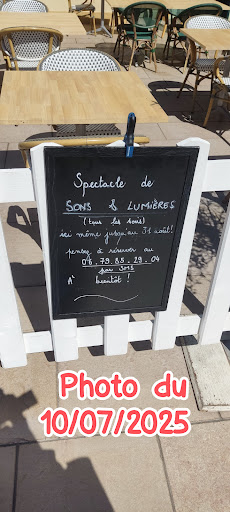 Spectacle de
SONS & LUMIÈRES
(tous les soirs)
ici même jusqu'au 31 août!
pensez à réserver au
06.79.85.29.04
par SMS
A' bientôt!
Photo du
10/07/2025